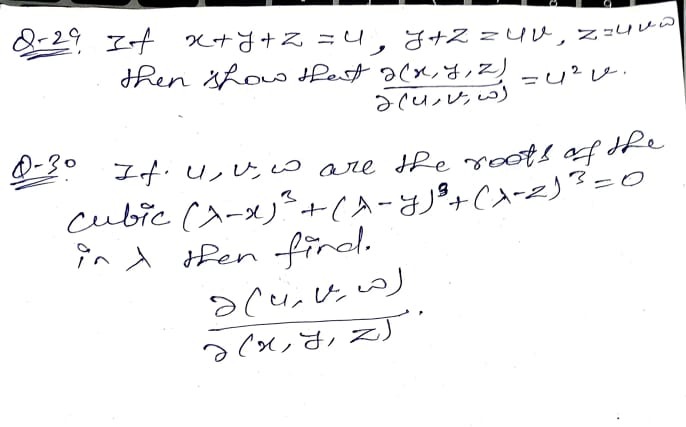 Q-29. If x+y+z=u, y+z=uv, z=uvw
then show that ∂(x,y,z)/∂(u,v,w) = u²v.
Q-30 If u,v,w are the roots of the
cubic (λ-x)³+(λ-y)³+(λ-z)³=0
in λ then find.
∂(u,v,w)/∂(x,y,z).